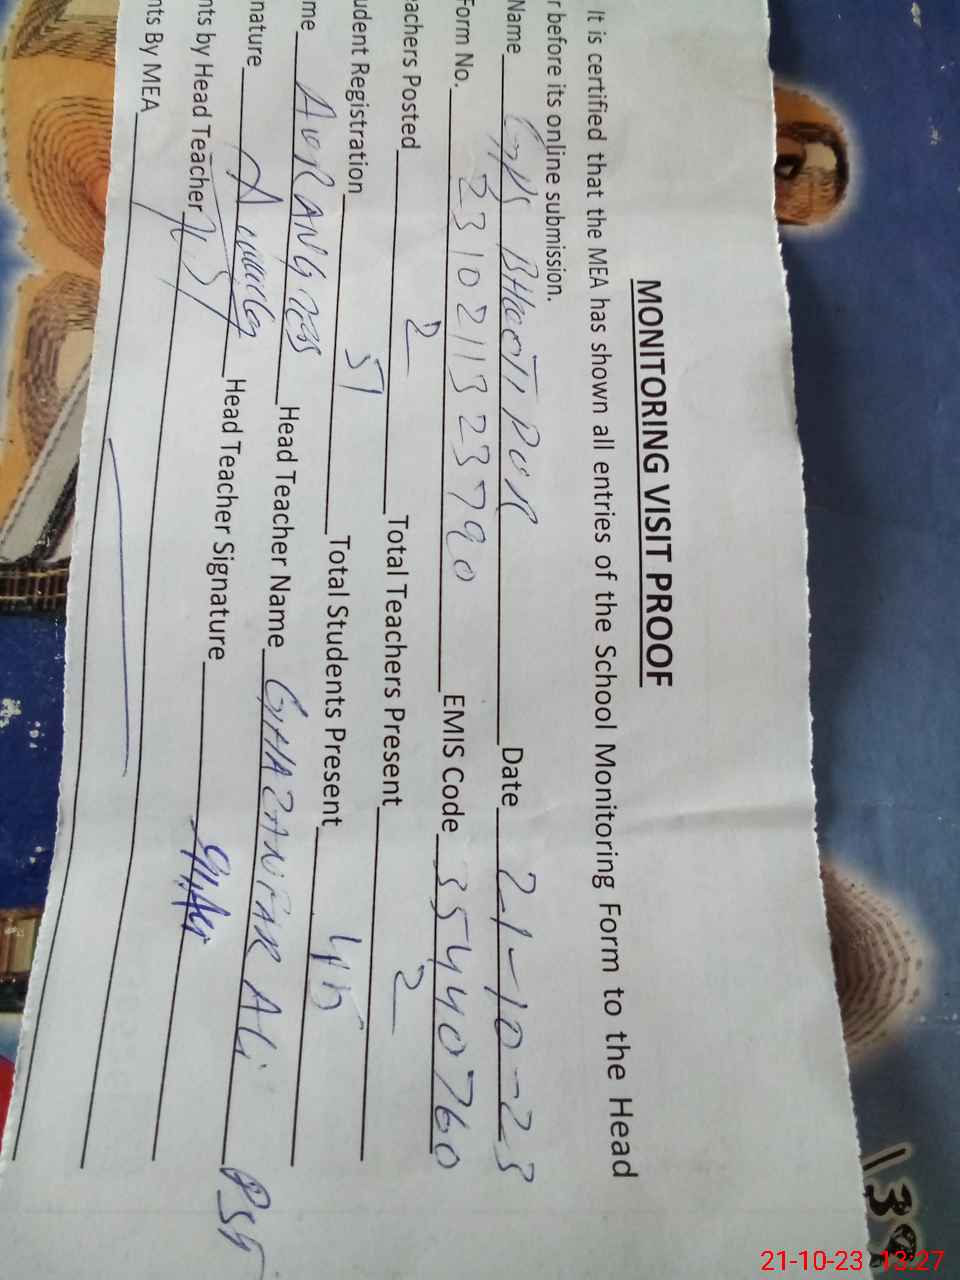 MONITORING VISIT PROOF
It is certified that the MEA has shown all entries of the School Monitoring Form to the Head
r before its online submission.
Name GPS BHOOTI PUR Date 21-10-23
Form No. 2310211323790 EMIS Code 35440760
eachers Posted 2 Total Teachers Present 2
udent Registration 51 Total Students Present 45
me AURANGZEB Head Teacher Name GHAZANFAR ALi PST
nature Head Teacher Signature
nts by Head Teacher
nts By MEA
139
21-10-23 13:27